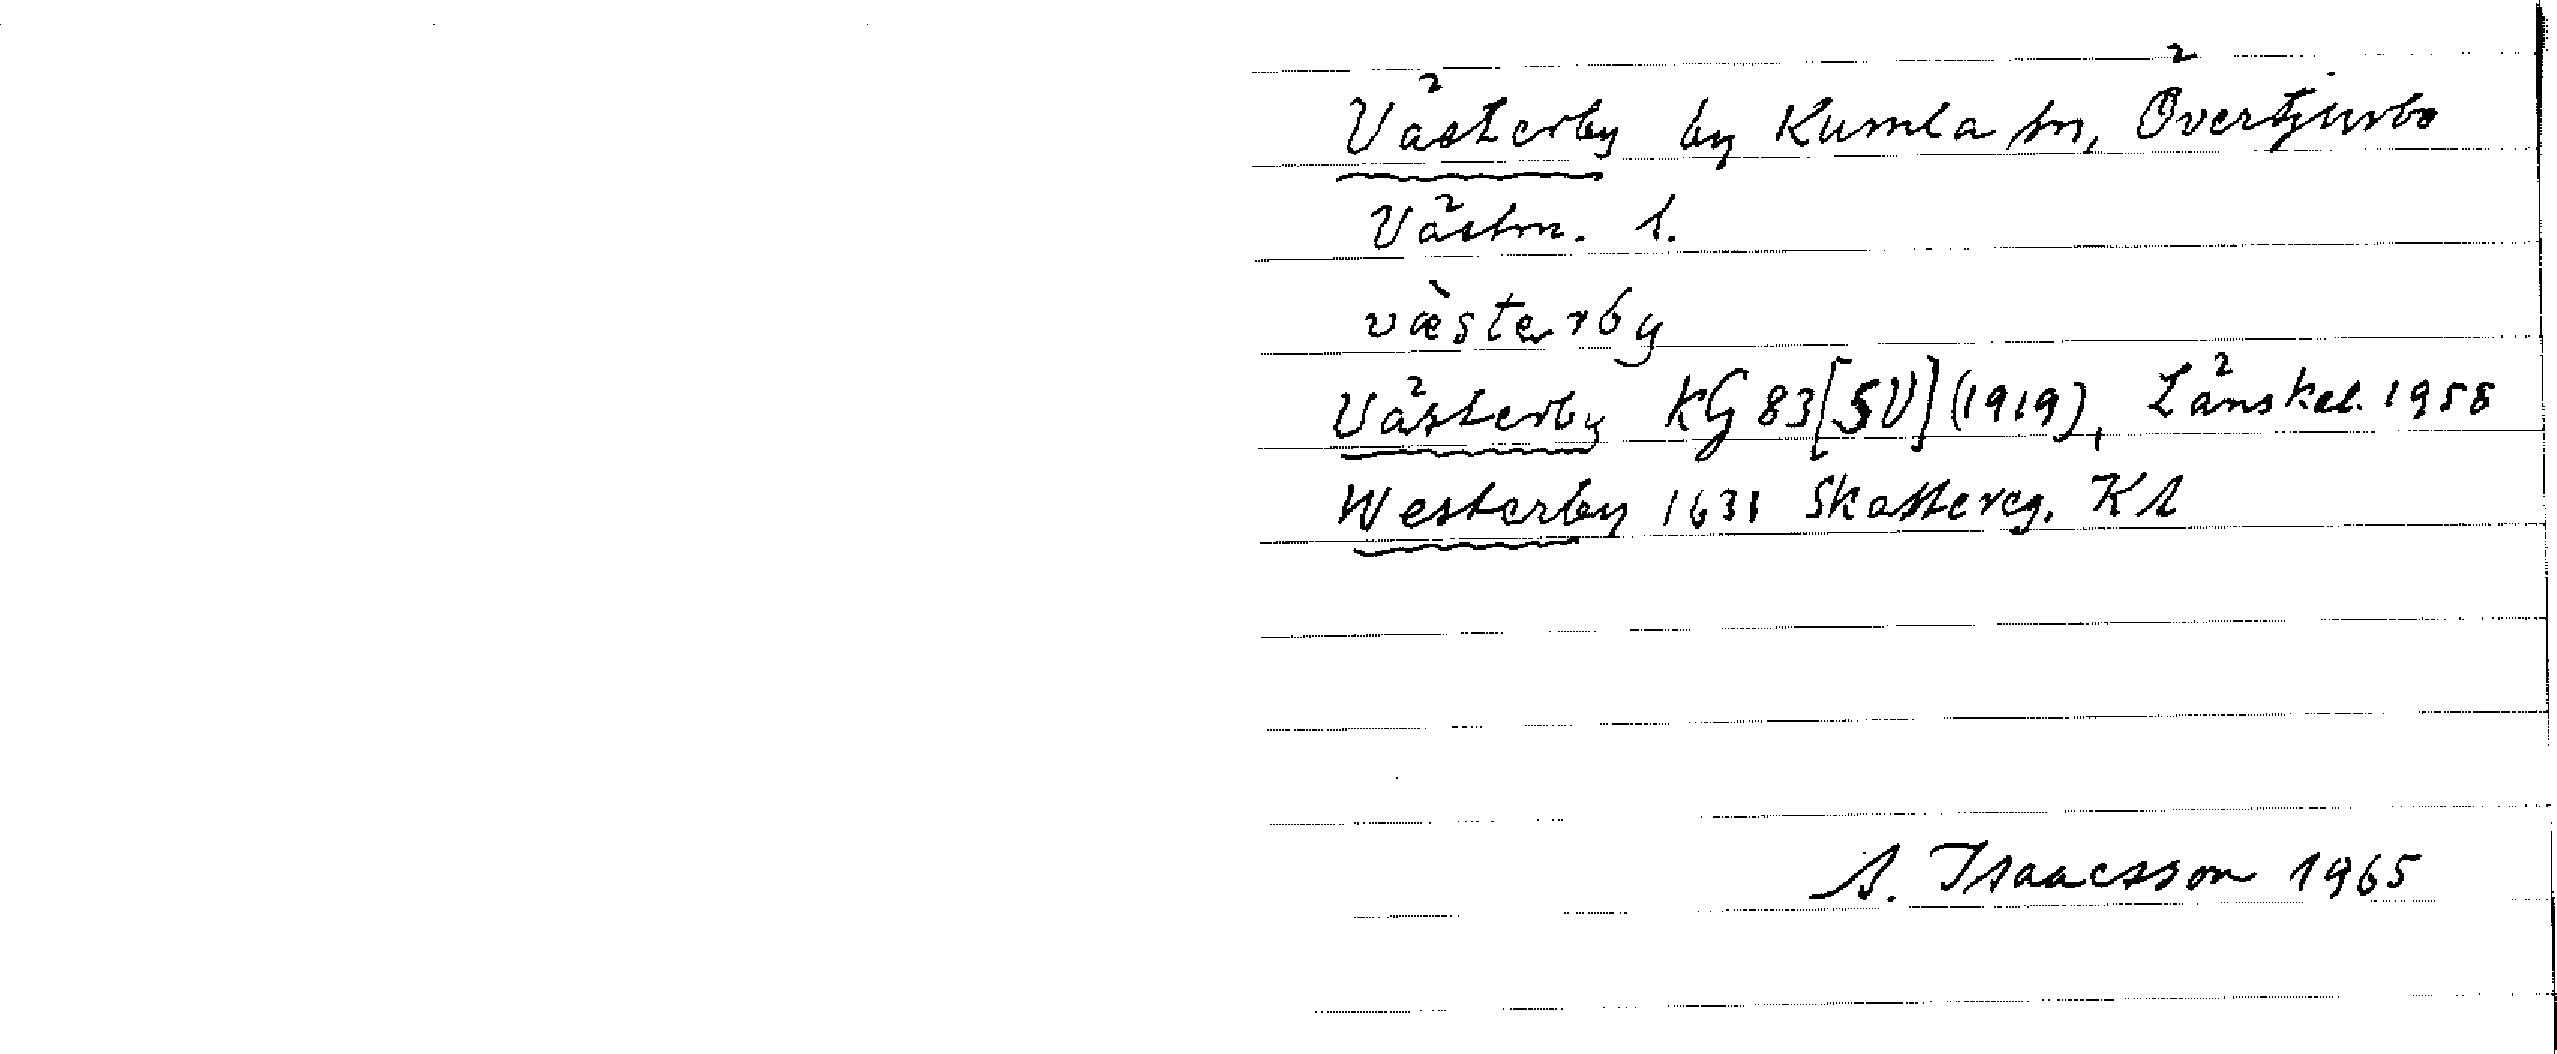 Västerby by Kumla sn, Övertjurbo
Västm. l.
væ̀sterby
Västerby KG 83 [SV] (1919), Länskal. 1958
Westerby 1631 Skattereg. KA
A. Isaacsson 1965